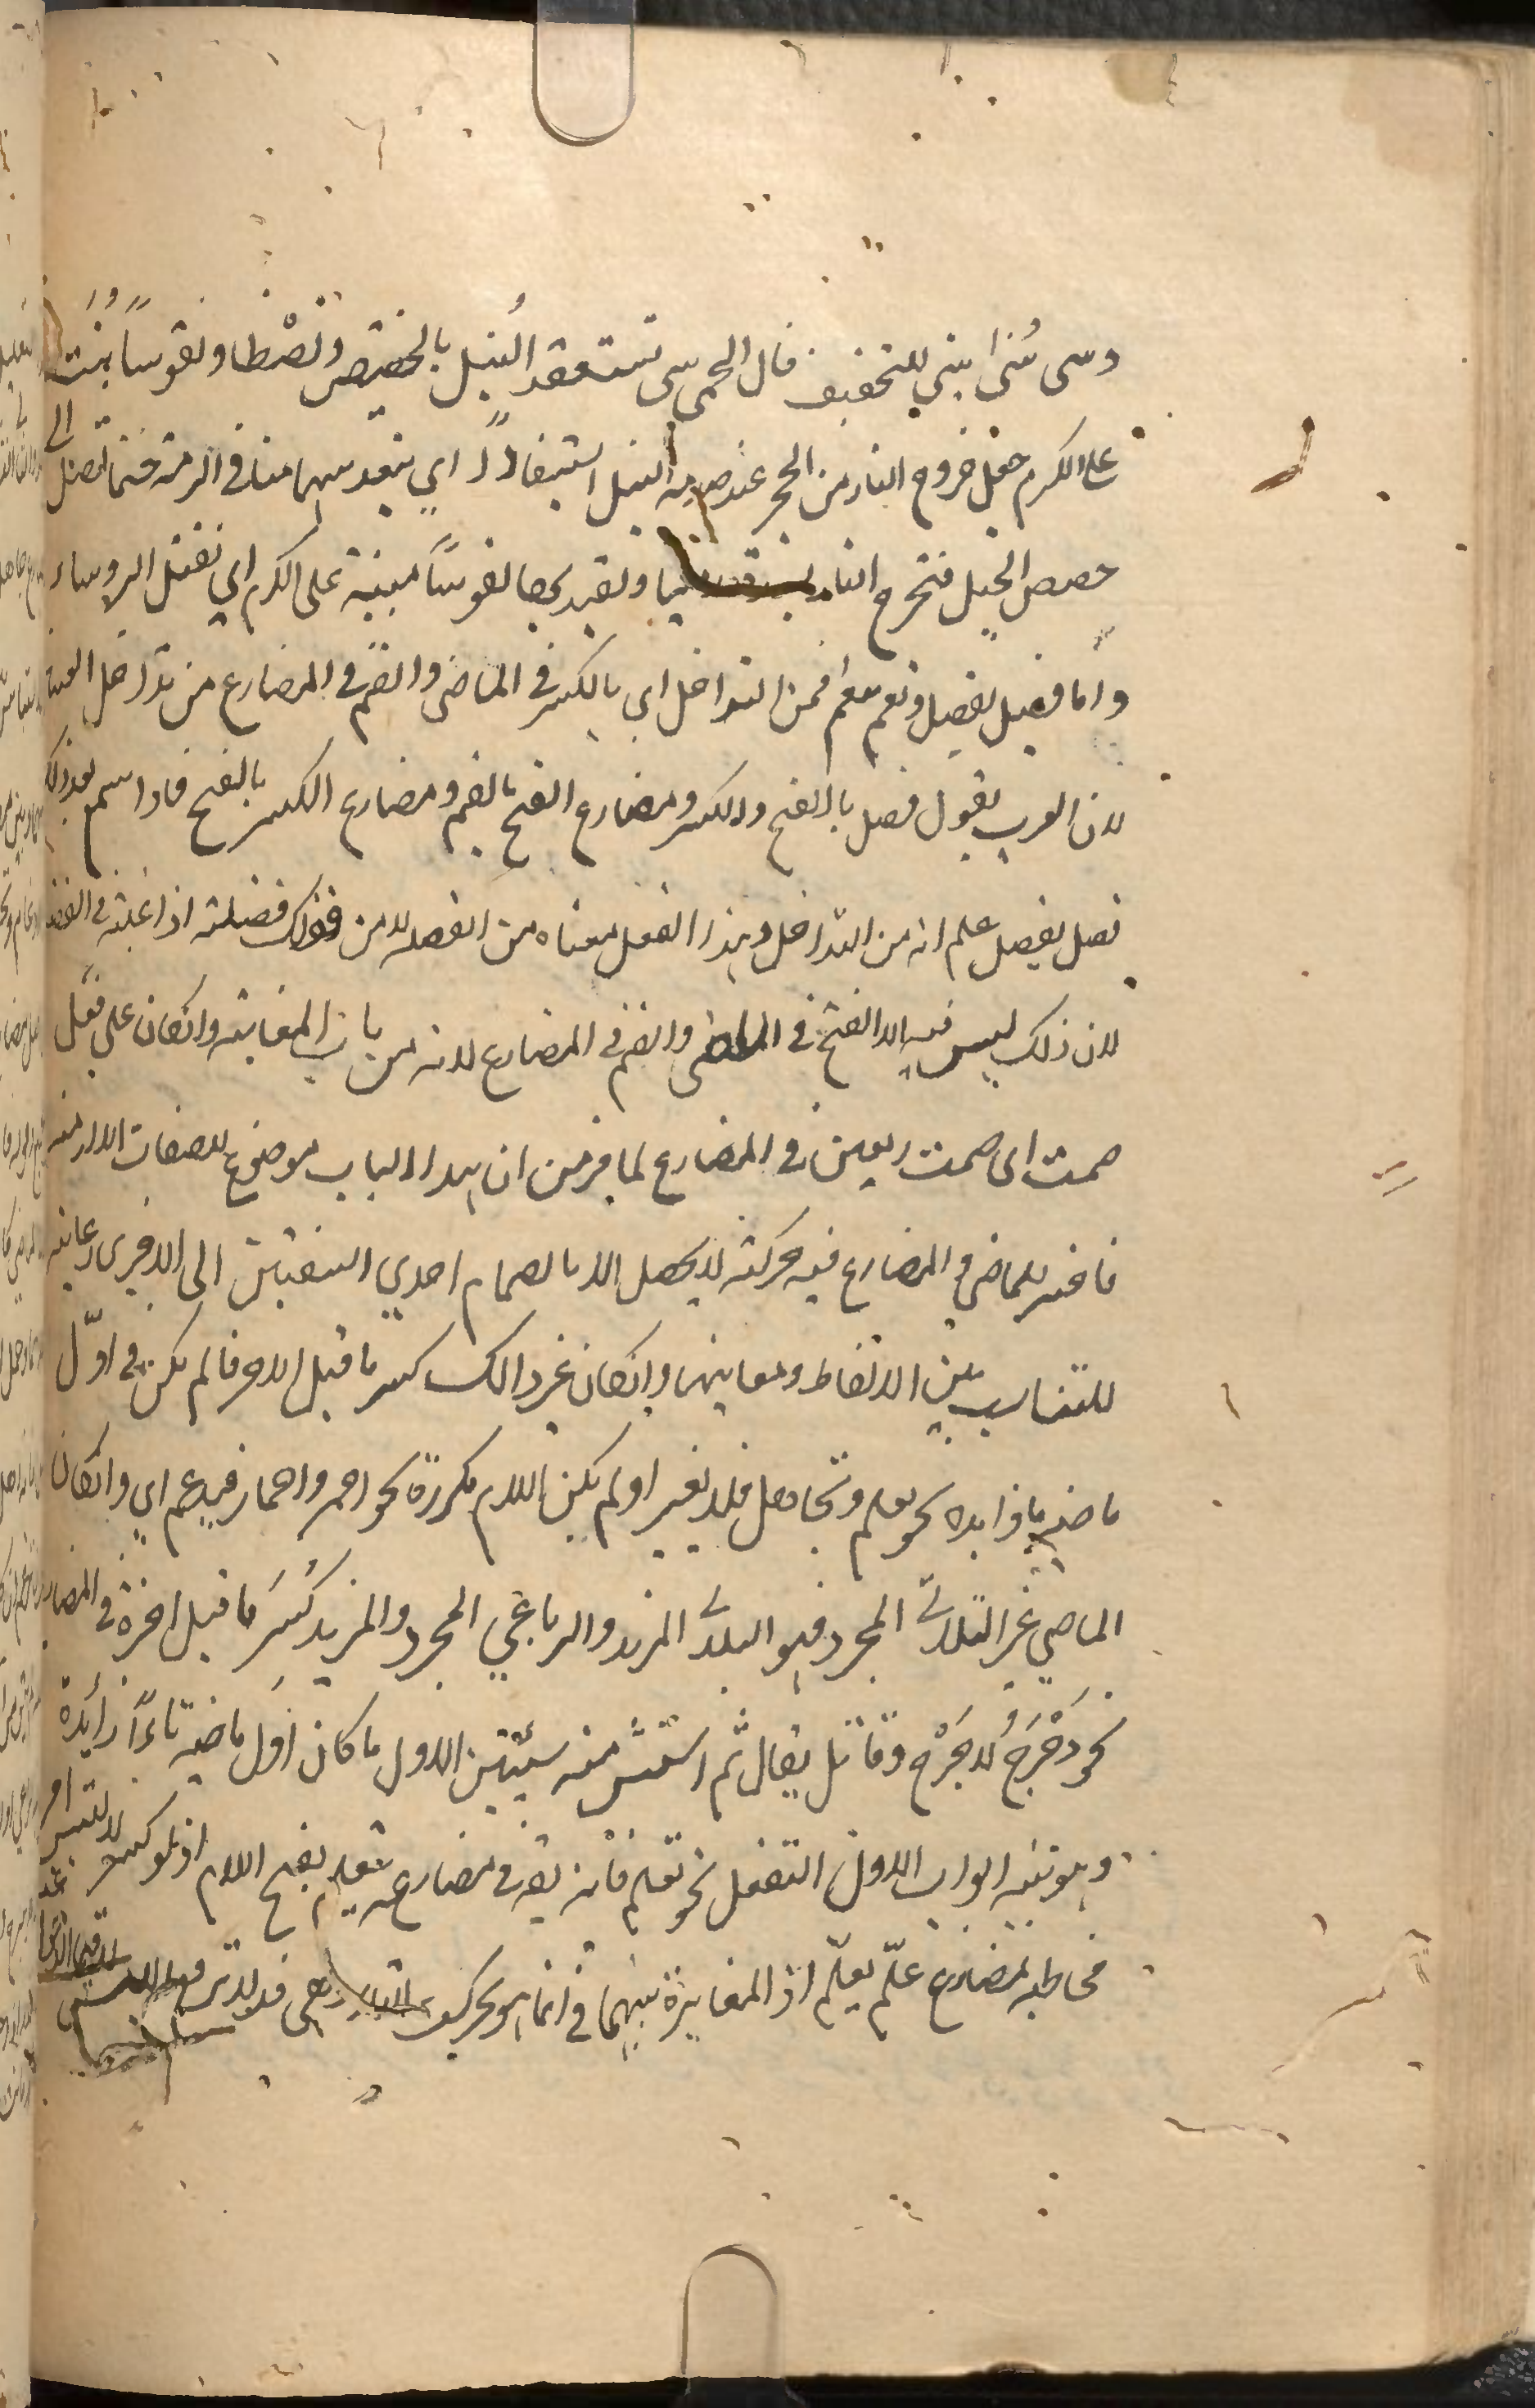 وسى بنى ابني للتخفيف قال الحمى سى تستوقد النبل بالحضيض وتصطاد نفوسا بنت
على الكرم جعل خروج النار من الحجر عند صدمة النبل استيقادًا اي ينفد سهامنا في الرمية حتى تصل الى
حضيض الجبل فتخرج النار ونصيد بها نفوسًا مبنية على الكرم اي نقتل الروساء
وأما فضل يفضل ونعم ينعم فمن التداخل اي بالكسر في الماضي والضم في المضارع من تداخل اللغتين
لان العرب يقول فضل بالفتح والكسر ومضارع الفتح بالضم ومضارع الكسر بالفتح فاذا سمع بعد ذلك
فضل يفضل علم انه من التداخل وهذا الفعل معناه من الفضله لا من قولك فضلته اذا غلبته في الفضل
لان ذلك ليس فيه الا الفتح في الماضي والضم في المضارع لانه من باب المغالبة وانكان على فعل
ضمت اى ضمت العين في المضارع لما فرض ان هذا الباب موضوع للصفات اللازمة
فاختير للماضي والمضارع فيه حركة لا يحصل الا بانضمام احدي الشفتين الى الاخرى رعاية
للتناسب بين الالفاظ ومعانيها وانكان غير ذالك كسر ما قبل الاخر ما لم يكن في اوّل
ماضيه تاء زايده نحو تعلم وتجاهل فلا يغير او لم يكن اللام مكررة نحو احمر واحمار فيدغم اي وانكان
الماضي غير الثلاثي المجرد فهو الثلاثي المزيد والرباعي المجرد والمزيد كُسِرَ ما قبل اخره في المضارع
نحو دَحْرَجَ يُدحْرِجُ وقاتل يقاتل ثم استثنى منه شيئين الاول ما كان اول ماضيه تاءً زائدة
وهو ثلثه ابواب الاول التفعل نحو تعلم فانه يقال في مضارعه يتعلم بفتح اللام اذ لو كسر لالتبس امر
مخاطبه بمضارع علّم يعلّم اذ المغايرة بينهما في انما هو بحركة التاء وهي